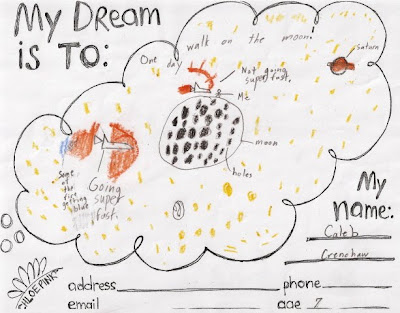 My Dream
is To:
One day
walk on the moon!
saturn
Not going
super fast.
Me
moon
holes
some
of
the
fire
getting
blue
Going
super
fast.
My
name:
Caleb
Crenshaw
CHLOEPINK
address
phone
email
age 7